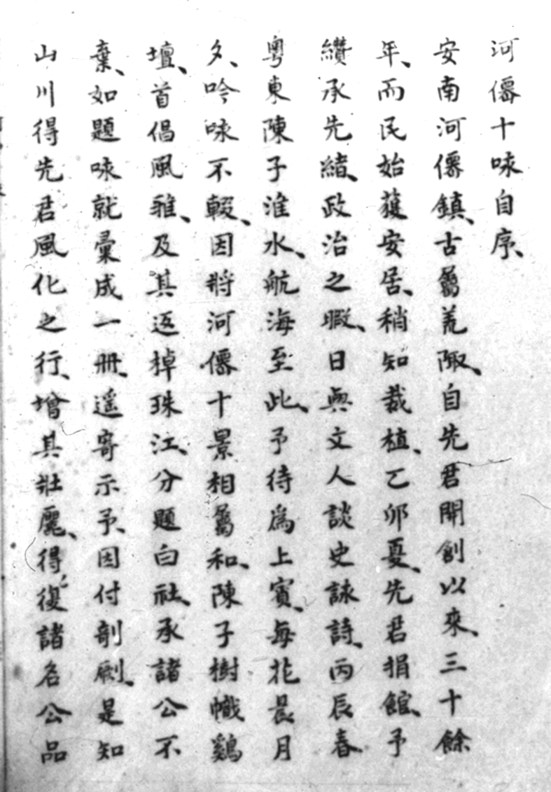 河僊十咏自序、
安南河僊鎮、古屬荒陬、自先君開創以來、三十餘
年、而民始獲安居、稍知栽植、乙卯夏、先君捐館、予
纘承先緒、政治之暇、日與文人談史詠詩、丙辰春
粵東陳子淮水、航海至此、予待爲上賓、每花晨月
夕、吟咏不輟、因將河僊十景相屬和、陳子樹幟鷄
壇、首倡風雅、及其返棹珠江、分題白社、承諸公不
棄、如題咏就彙成一册、遥寄示予、因付剞劂、是知
山川得先君風化之行、增其壯麗、得復諸名公品